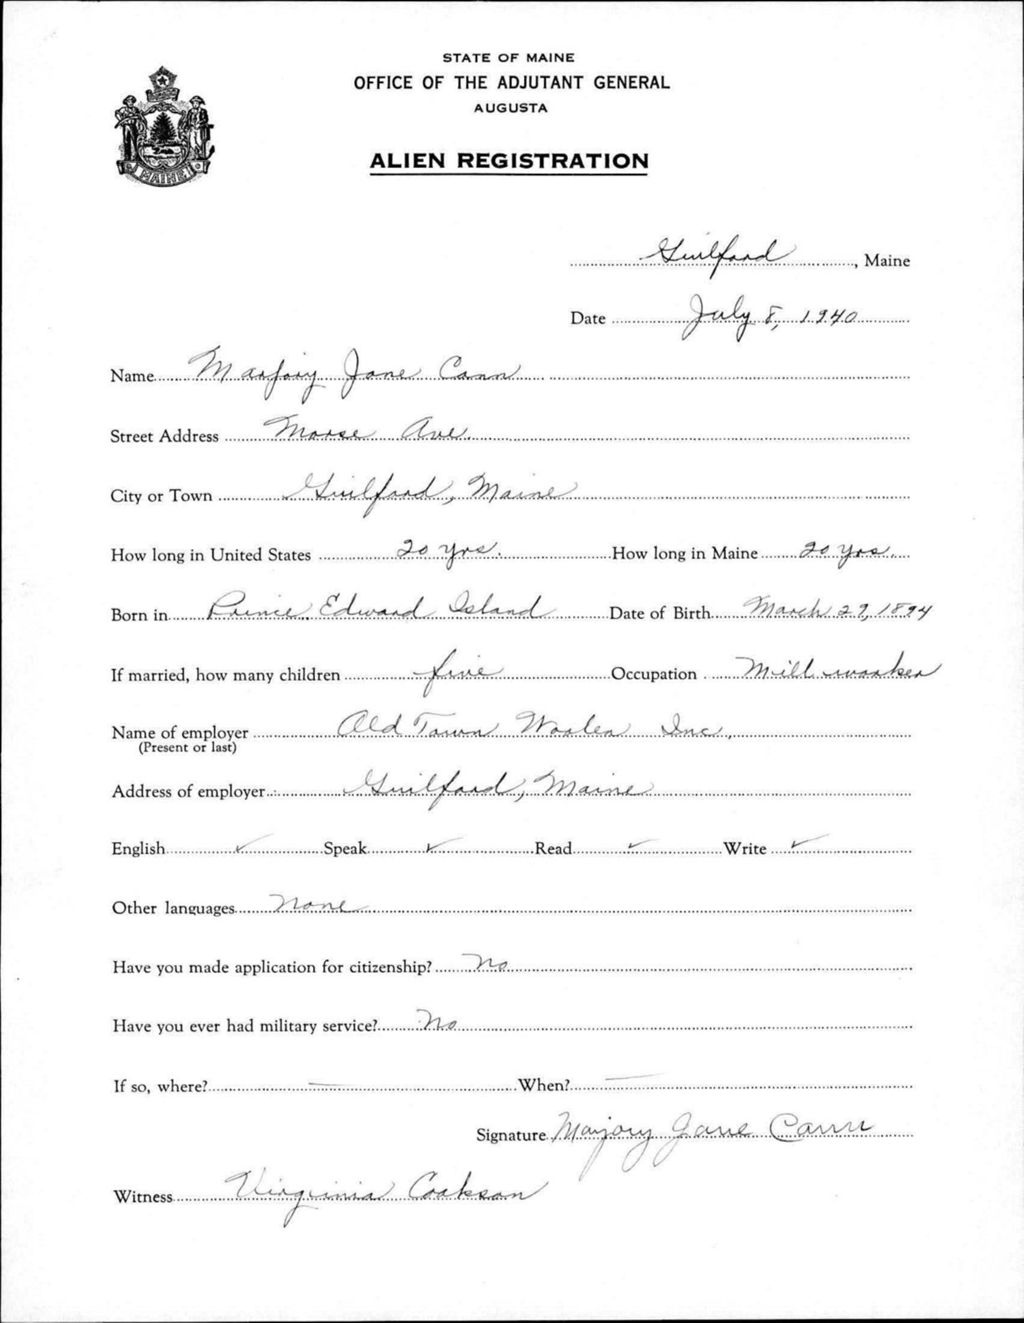 STATE OF MAINE
OFFICE OF THE ADJUTANT GENERAL
AUGUSTA
ALIEN REGISTRATION
MAINE
Guilford, Maine
Date July 8, 1940
Name Marjory Jane Cann
Street Address Morse Ave.
City or Town Guilford, Maine
How long in United States 20 yrs. How long in Maine 20 yrs.
Born in Prince Edward Island Date of Birth March 27, 1894
If married, how many children five Occupation Mill worker
Name of employer Old Town Woolen Inc.
(Present or last)
Address of employer Guilford, Maine
English ✓ Speak ✓ Read ✓ Write ✓
Other languages None
Have you made application for citizenship? No
Have you ever had military service? No
If so, where? — When? —
Signature Marjory Jane Cann
Witness Virginia Cookson